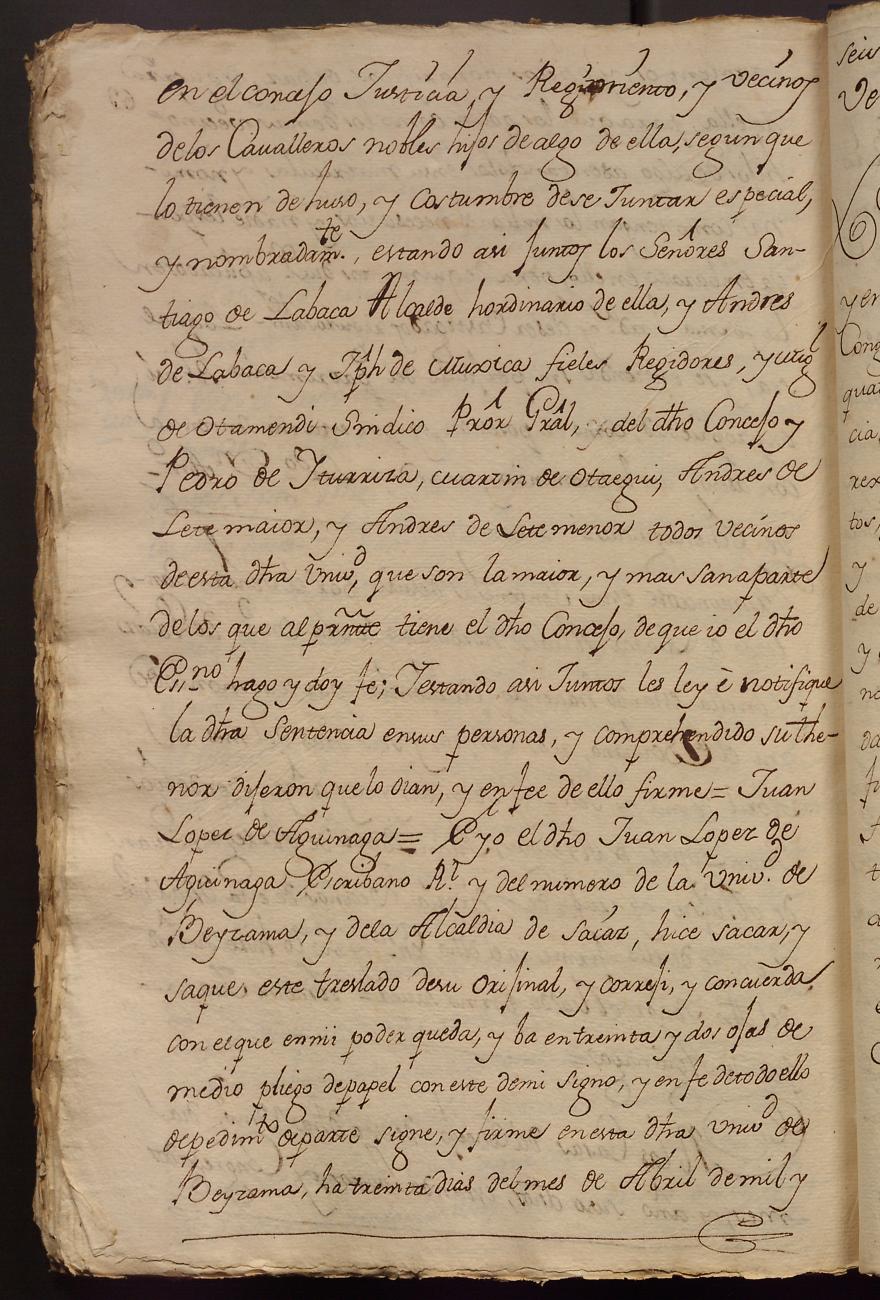 en el concejo Justicia, y Regimiento, y vecinos
de los Cavalleros nobles hijos de algo de ella, segun que
lo tienen de huso, y costumbre de se Juntar especial,
y nombradamte., estando asi Juntos los Señores San-
tiago de Labaca Alcalde hordinario de ella, y Andres
de Labaca y Jph de Muxica fieles Regidores, y
de Otamendi Sindico Pror Gral, del dho Concejo y
Pedro de Yturriza, Martin de Otaegui, Andres de
Lete maior, y Andres de Lete menor todos vecinos
de esta dha Univd, que son la maior, y mas sana parte
de los que al prnte tiene el dho Concejo, de que io el dho
Esno hago y doy fe; Y estando asi Juntos les ley è notifique
la dha Sentencia en sus personas, y comprehendido su the-
nor dijeron que lo oian, y en fee de ello firme = Juan
Lopez de Aguinaga = E yo el dho Juan Lopez de
Aguinaga Escribano Rl y del numero de la Univd. de
Beyzama, y de la Alcaldia de Saiaz, hice sacar, y
saque este treslado de su orijinal, y correji, y concuerda
con el que en mi poder queda, y ba en treinta y dos ojas de
medio pliego de papel con este de mi signo, y en fe de todo ello
de pedimto de parte signe, y firme en esta dha Univd de
Beyzama, ha treinta dias del mes de Abril de mil y